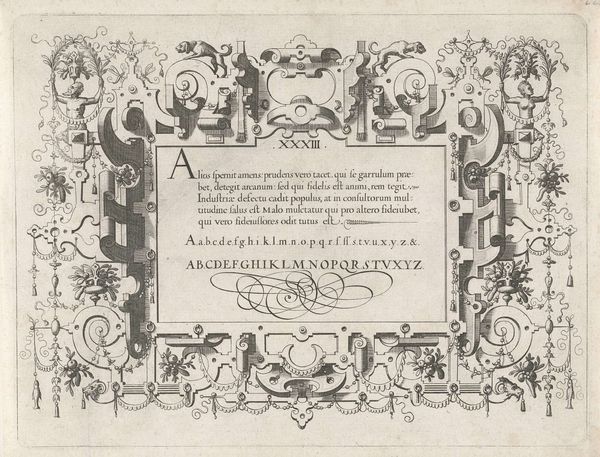 . XXXIII .
Alios spernit amens: prudens vero tacet. qui se garrulum præ-
bet, detegit arcanum: sed qui fidelis est animi, rem tegit.
Industriæ defectu cadit populus, at in consultorum mul-
titudine salus est Malo mulctatur qui pro altero fideiubet,
qui vero fideiussores odit tutus est.
A.a.b.c.d.e.f.g.h.i.k.l.m.n.o.p.q.r.ſ.ſſ.s.t.v.u.x.y.z.&.
ABCDEFGHIKLMNOPQRSTVXYZ.